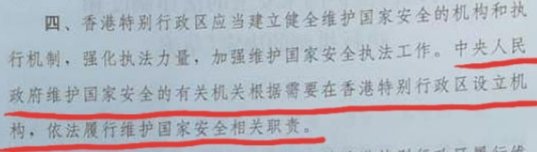 四、香港特别行政区应当建立健全维护国家安全的机构和执
行机制，强化执法力量，加强维护国家安全执法工作。中央人民
政府维护国家安全的有关机关根据需要在香港特别行政区设立机
构，依法履行维护国家安全相关职责。